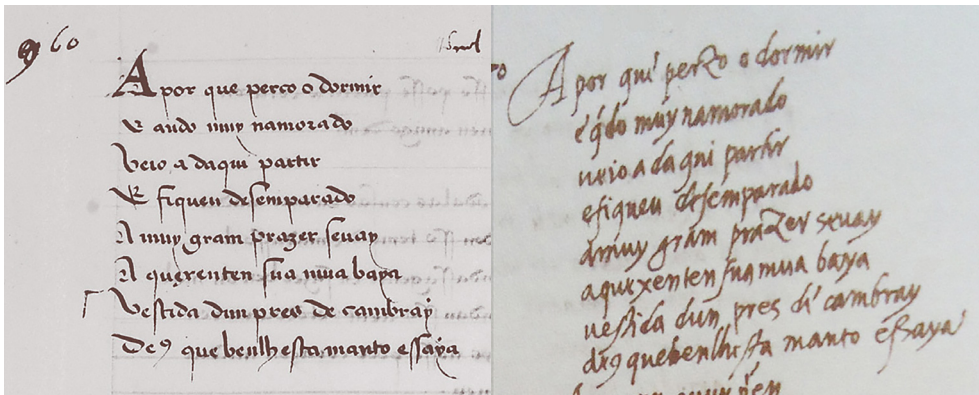 960
A por que perco o dormir
E ando muy namorado
Veio a daqui partir
E fiqueu desemparado
A muy gram prazer sevay
A querenten sua mua baya
Vestida dun pres de cambray
De9 que benlhesta manto essaya
A por qui perzo o dormir
e qdo muy namorado
veio a da qui partir
e fiqueu desemparado
amuy gram prazer sevay
aquexenten sua mua baya
vestida dun pres di cambray
de9 quebenlhista manto essaya